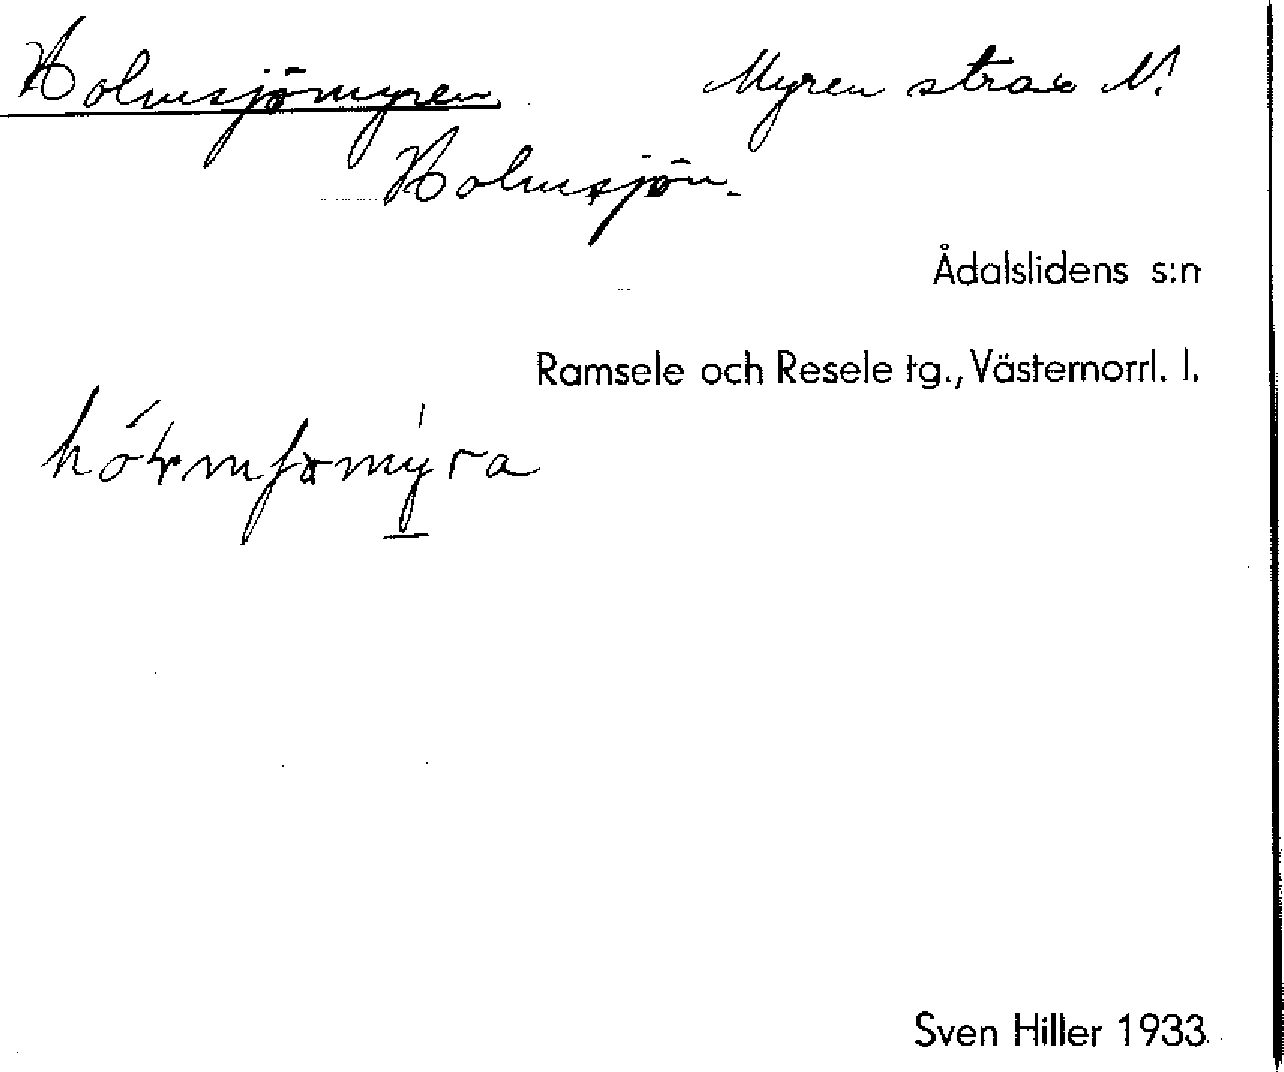 Holmsjömyren Myren strax N.
Holmsjön.
Ådalslidens s:n
Ramsele och Resele tg., Västernorrl. l.
Sven Hiller 1933